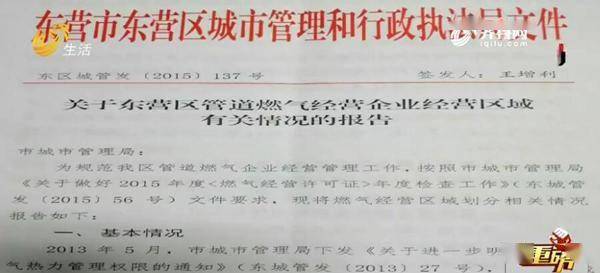 东营市东营区城市管理和行政执法局文件
生活
齐鲁网
iqilu.com
东区城管发（2015）137号 签发人：王增利
关于东营区管道燃气经营企业经营区域
有关情况的报告
市城市管理局：
为规范我区管道燃气企业经营管理工作，按照市城市管理局
《关于做好2015年度<燃气经营许可证>年度检查工作》（东城管
发（2015）56号）文件要求，现将燃气经营区域划分相关情况
报告如下：
一、基本情况
2013年5月，市城市管理局下发《关于进一步明
气热力管理权限的通知》（东城管发（2013）27号），